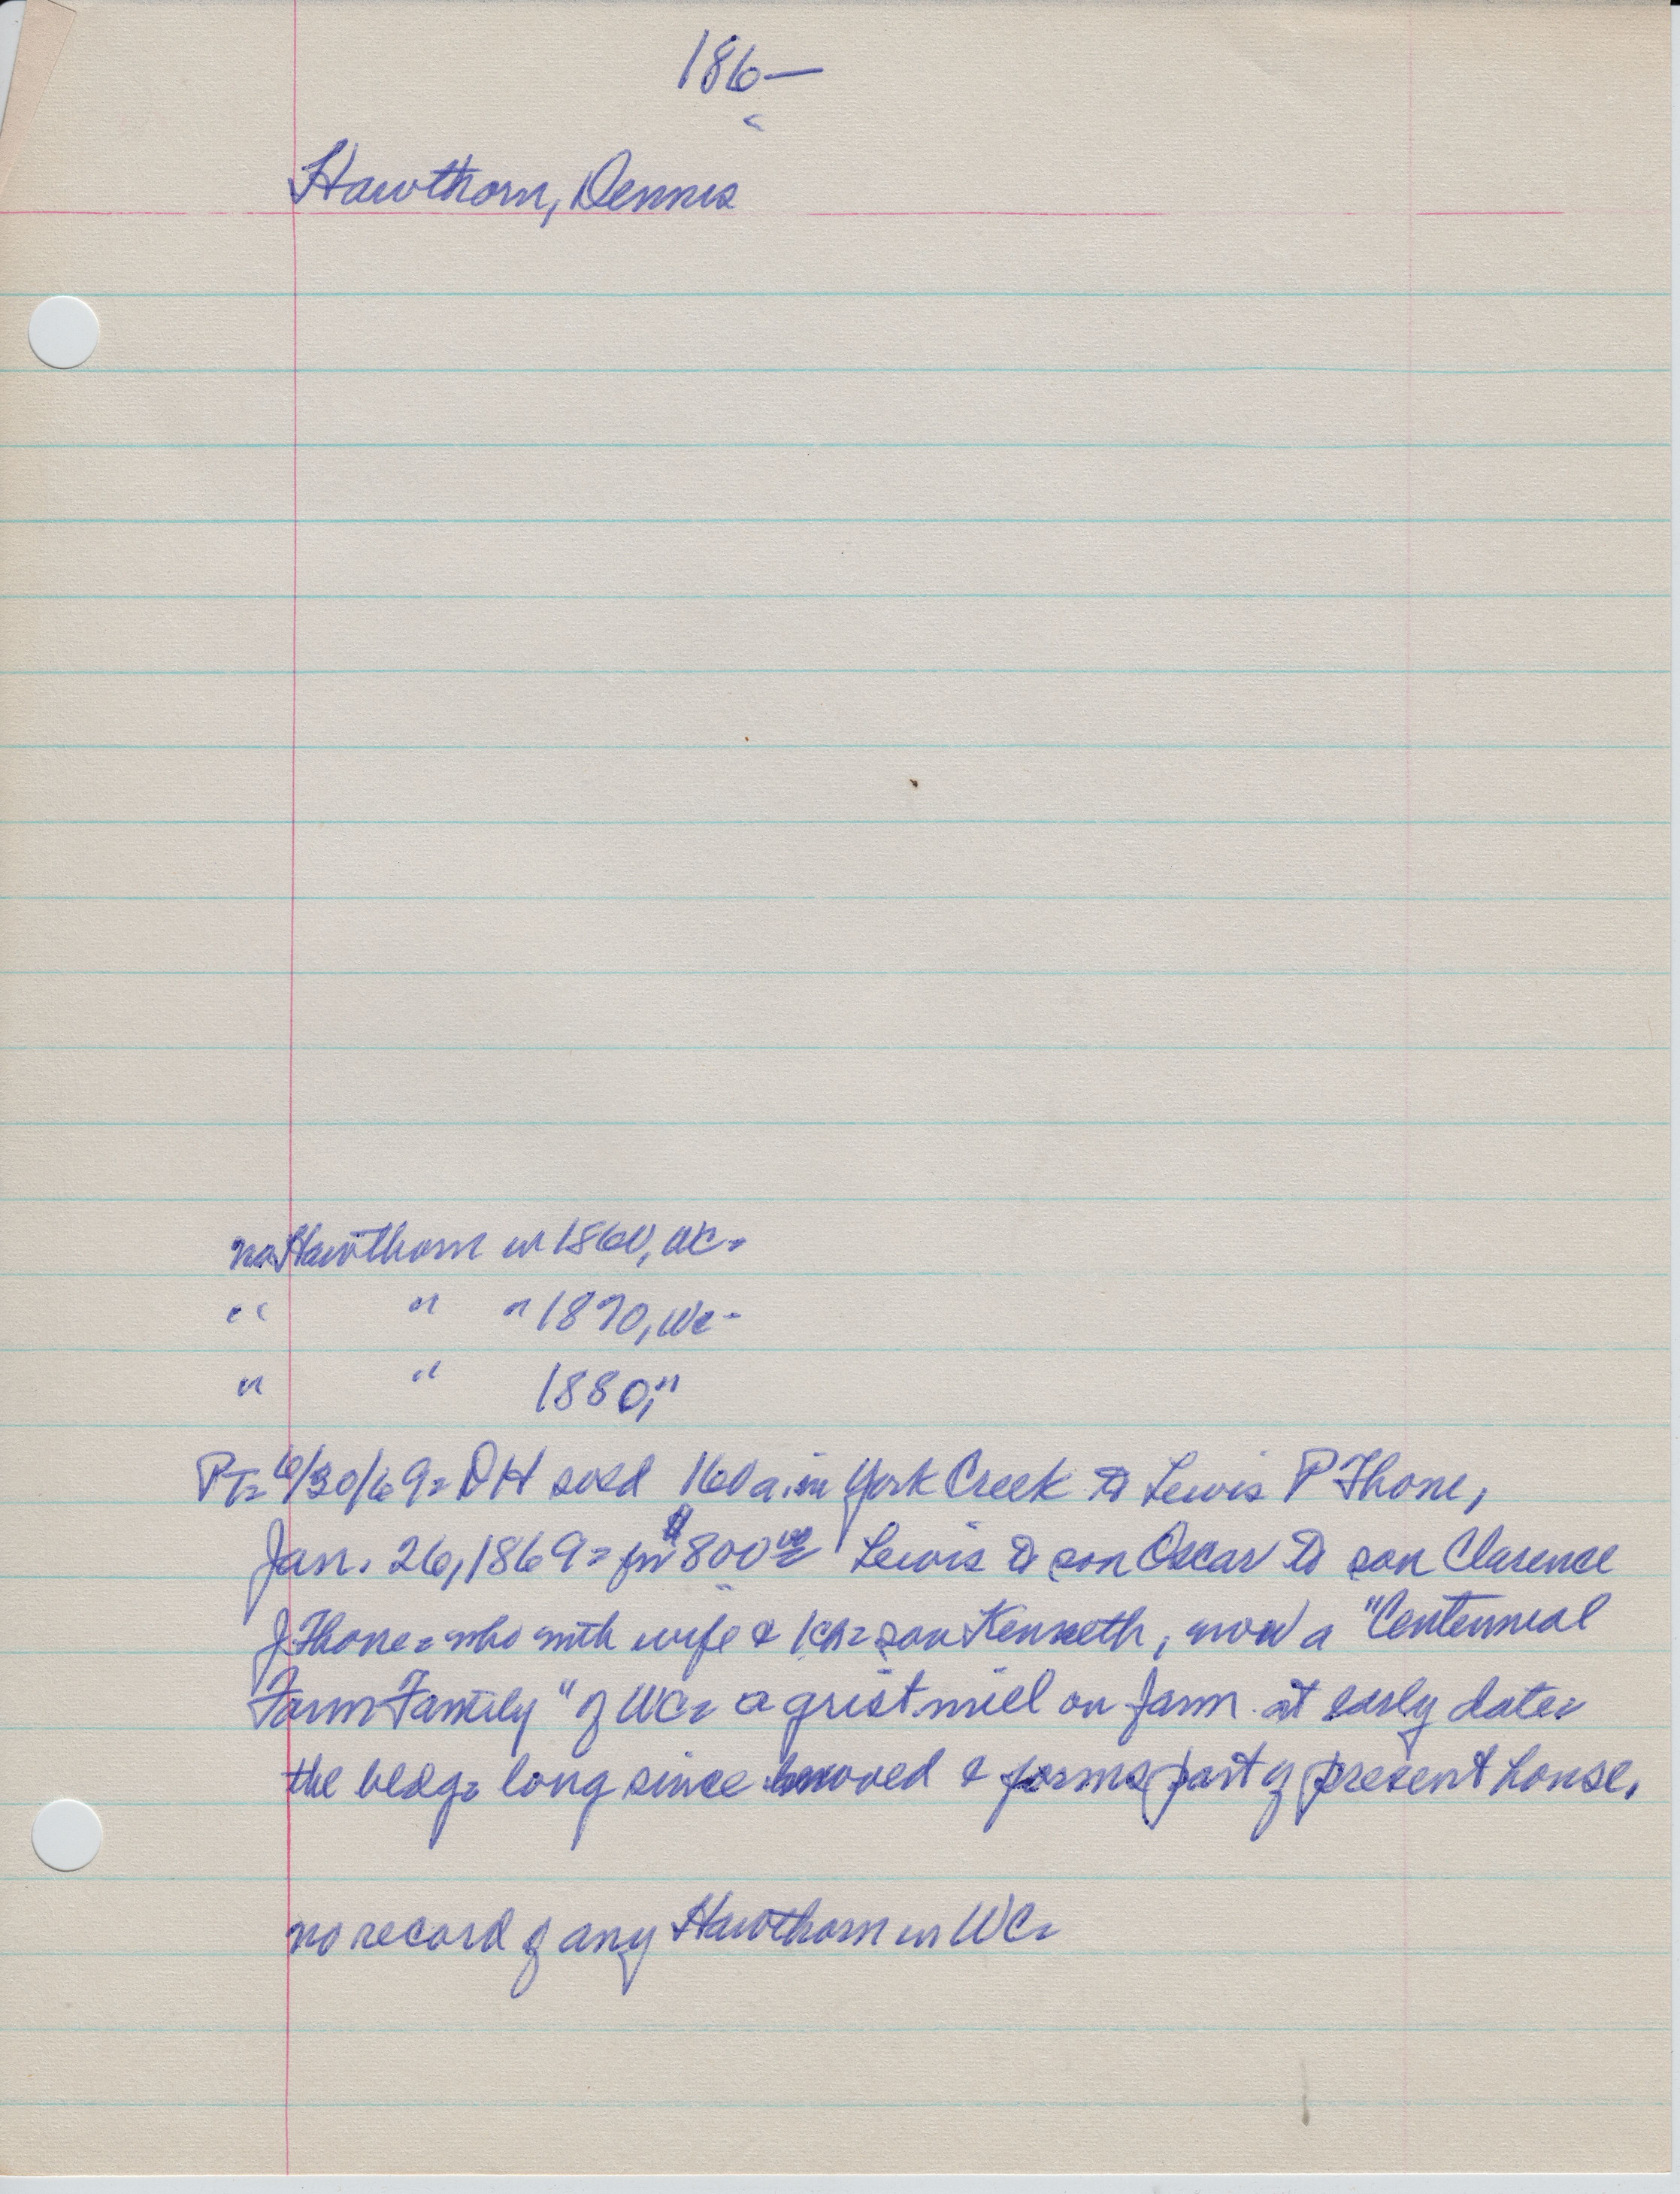 186—
Hawthorn, Dennis
no Hawthorn in 1860, WC=
" " " 1870, WC-
" " 1880, "
PT= 6/30/69= DH sold 160 a. in York Creek to Lewis P Thone,
Jan. 26, 1869= for $800.00 Lewis to son Oscar to son Clarence
J Thone= who with wife & 1 ch= son Kenneth, now a "Centennial
Farm Family" of WC= a grist mill on farm at early date=
the bldg= long since moved & forms part of present house.
no record of any Hawthorn in WC=